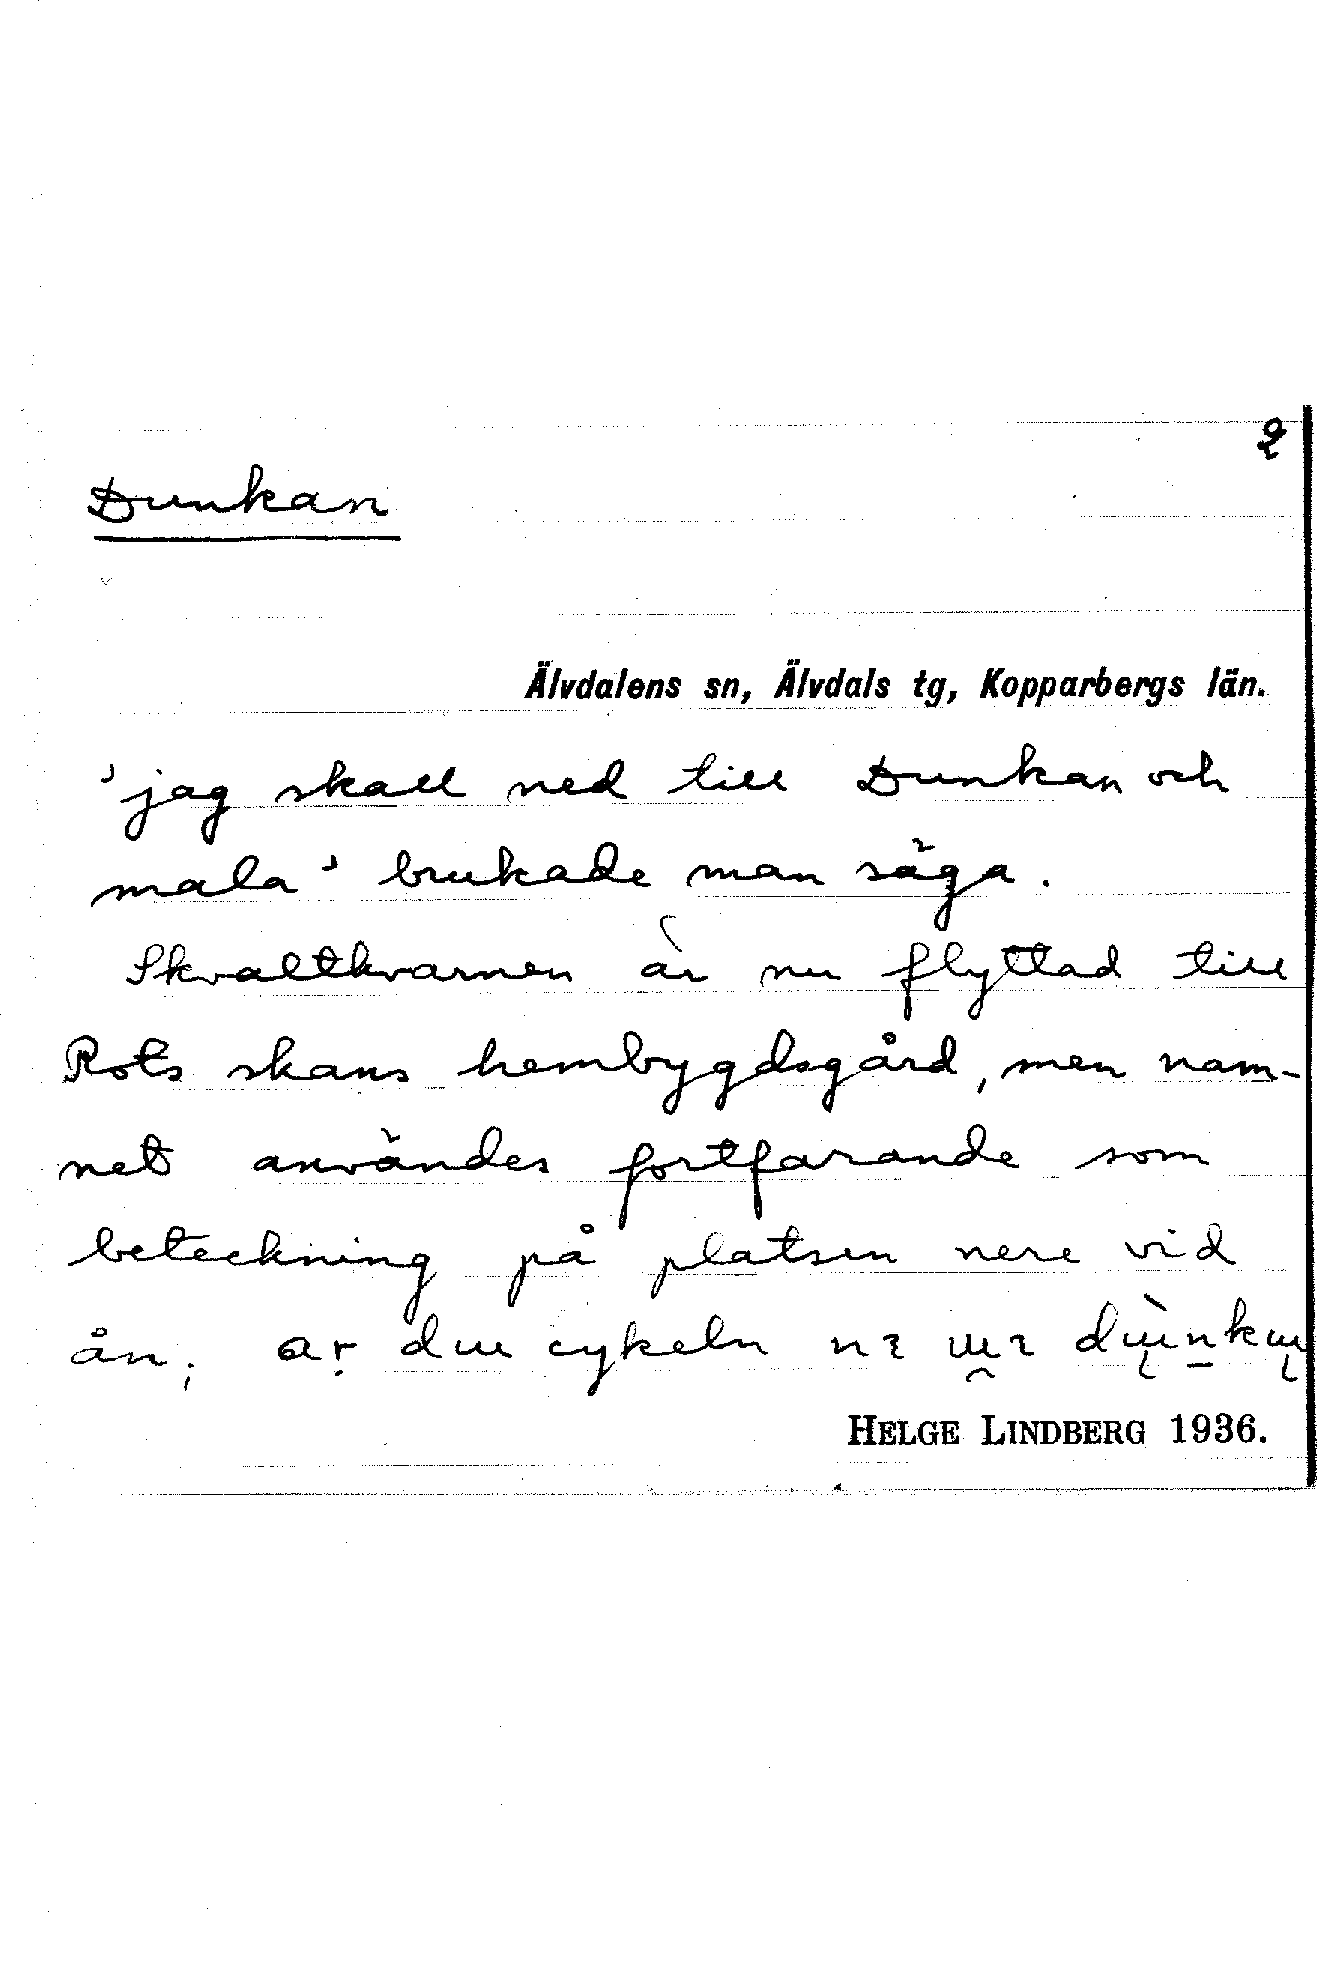 2
Dunkan
Älvdalens sn, Älvdals tg, Kopparbergs län.
'jag skall ned till Dunkan och
mala' brukade man säga.
Skvaltkvarnen är nu flyttad till
Rots skans hembygdsgård, men nam-
net användes fortfarande som
beteckning på platsen nere vid
ån; cykeln
HELGE LINDBERG 1936.